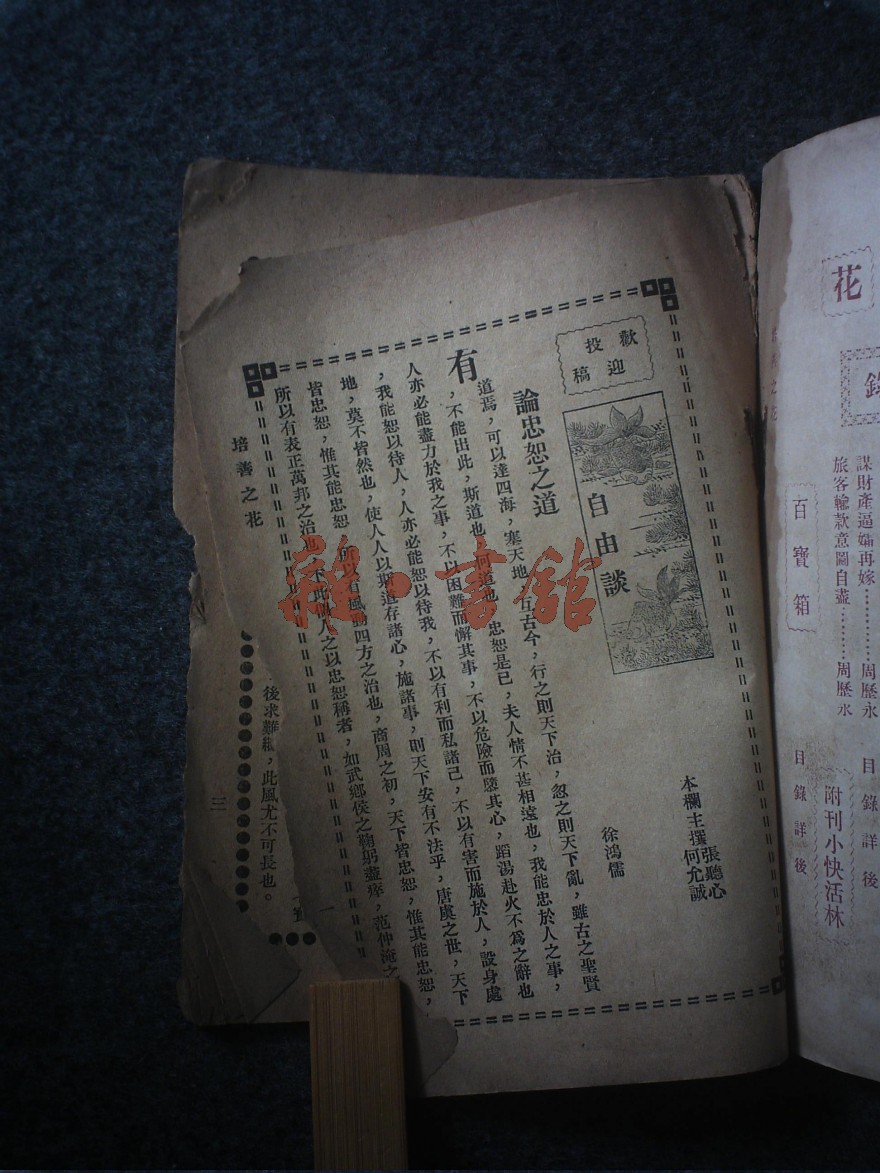 花
錄
謀財產逼孀再嫁…………周歷永
旅客輸款意圖自盡…………周歷永
目錄詳後
百寶箱
目錄詳後
附刊小快活林
歡迎
投稿
自由談
本欄主撰
張聽心
何允誠
論忠恕之道
徐鴻儒
有
道焉，可以達四海，塞天地，亙古今，行之則天下治，忽之則天下亂，雖古之聖賢
，不能出此，斯道也，何道也，忠恕是已，夫人情不甚相遠也，我能忠於人之事，
人亦必能盡力於我之事，不以困難而懈其事，不以危險而墮其心，蹈湯赴火不為之辭也
，我能恕以待人，人亦必能恕以待我，不以有利而私諸己，不以有害而施於人，設身處
地，莫不皆然也，使人人以斯道存諸心，施諸事，則天下安有不法乎，唐虞之世，天下
皆忠恕，惟其能忠恕 所以有風動四方之治也，商周之初，天下皆忠恕，惟其能忠恕，
所以有表正萬邦之治也，不此 人之以忠恕稱者，如武鄉侯之鞠躬盡瘁，范仲淹之
培善之花
後求 ，此風尤不可長也。
三
雜·書館